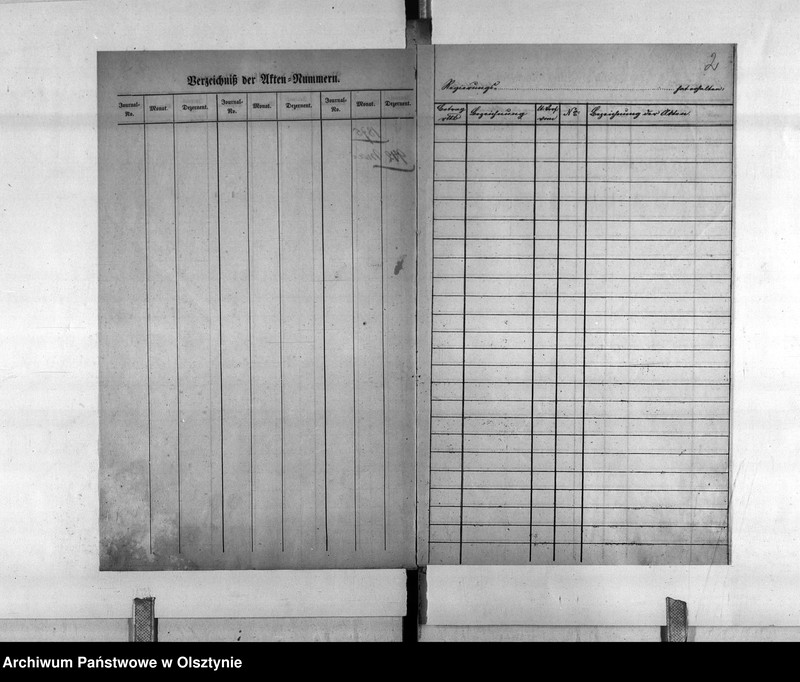 Verzeichniß der Akten=Nummern.
Journal-No. Monat. Dezernent. Journal-No. Monat. Dezernent. Journal-No. Monat. Dezernent.
2
Regierungs. hat erhalten.
Bezeichnung No. Bezeichnung der Akten
Archiwum Państwowe w Olsztynie